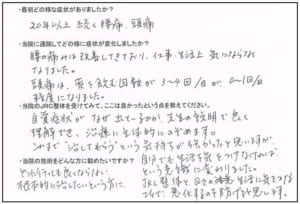 ・最初どの様な症状がありましたか？
20年以上続く腰痛、頭痛
・当院に通院してどの様に症状が変化しましたか？
腰の痛みは改善してきており、仕事・生活上気にならなく
なりました。
頭痛は、薬を飲む回数が3〜4回/月が0〜1回/月
程度になりました。
・当院のJRC整体を受けてみて、ここは良かったという点を教えてください。
自覚症状がなぜ出ているのか、先生の説明で良く
理解でき、治療に主体的にのぞめます。
今まで"治してもらう"という気持ちが強かったと思いますが、
自分でも生活を気をつけなければ
という意識に変わりました。
・当院の施術をどんな方に勧めたいですか？
どこに行っても良くならない
根本的に治したいという方に。
JRC整体と日々の生活に気をつける
ことで、悪化するのを防げると思います。